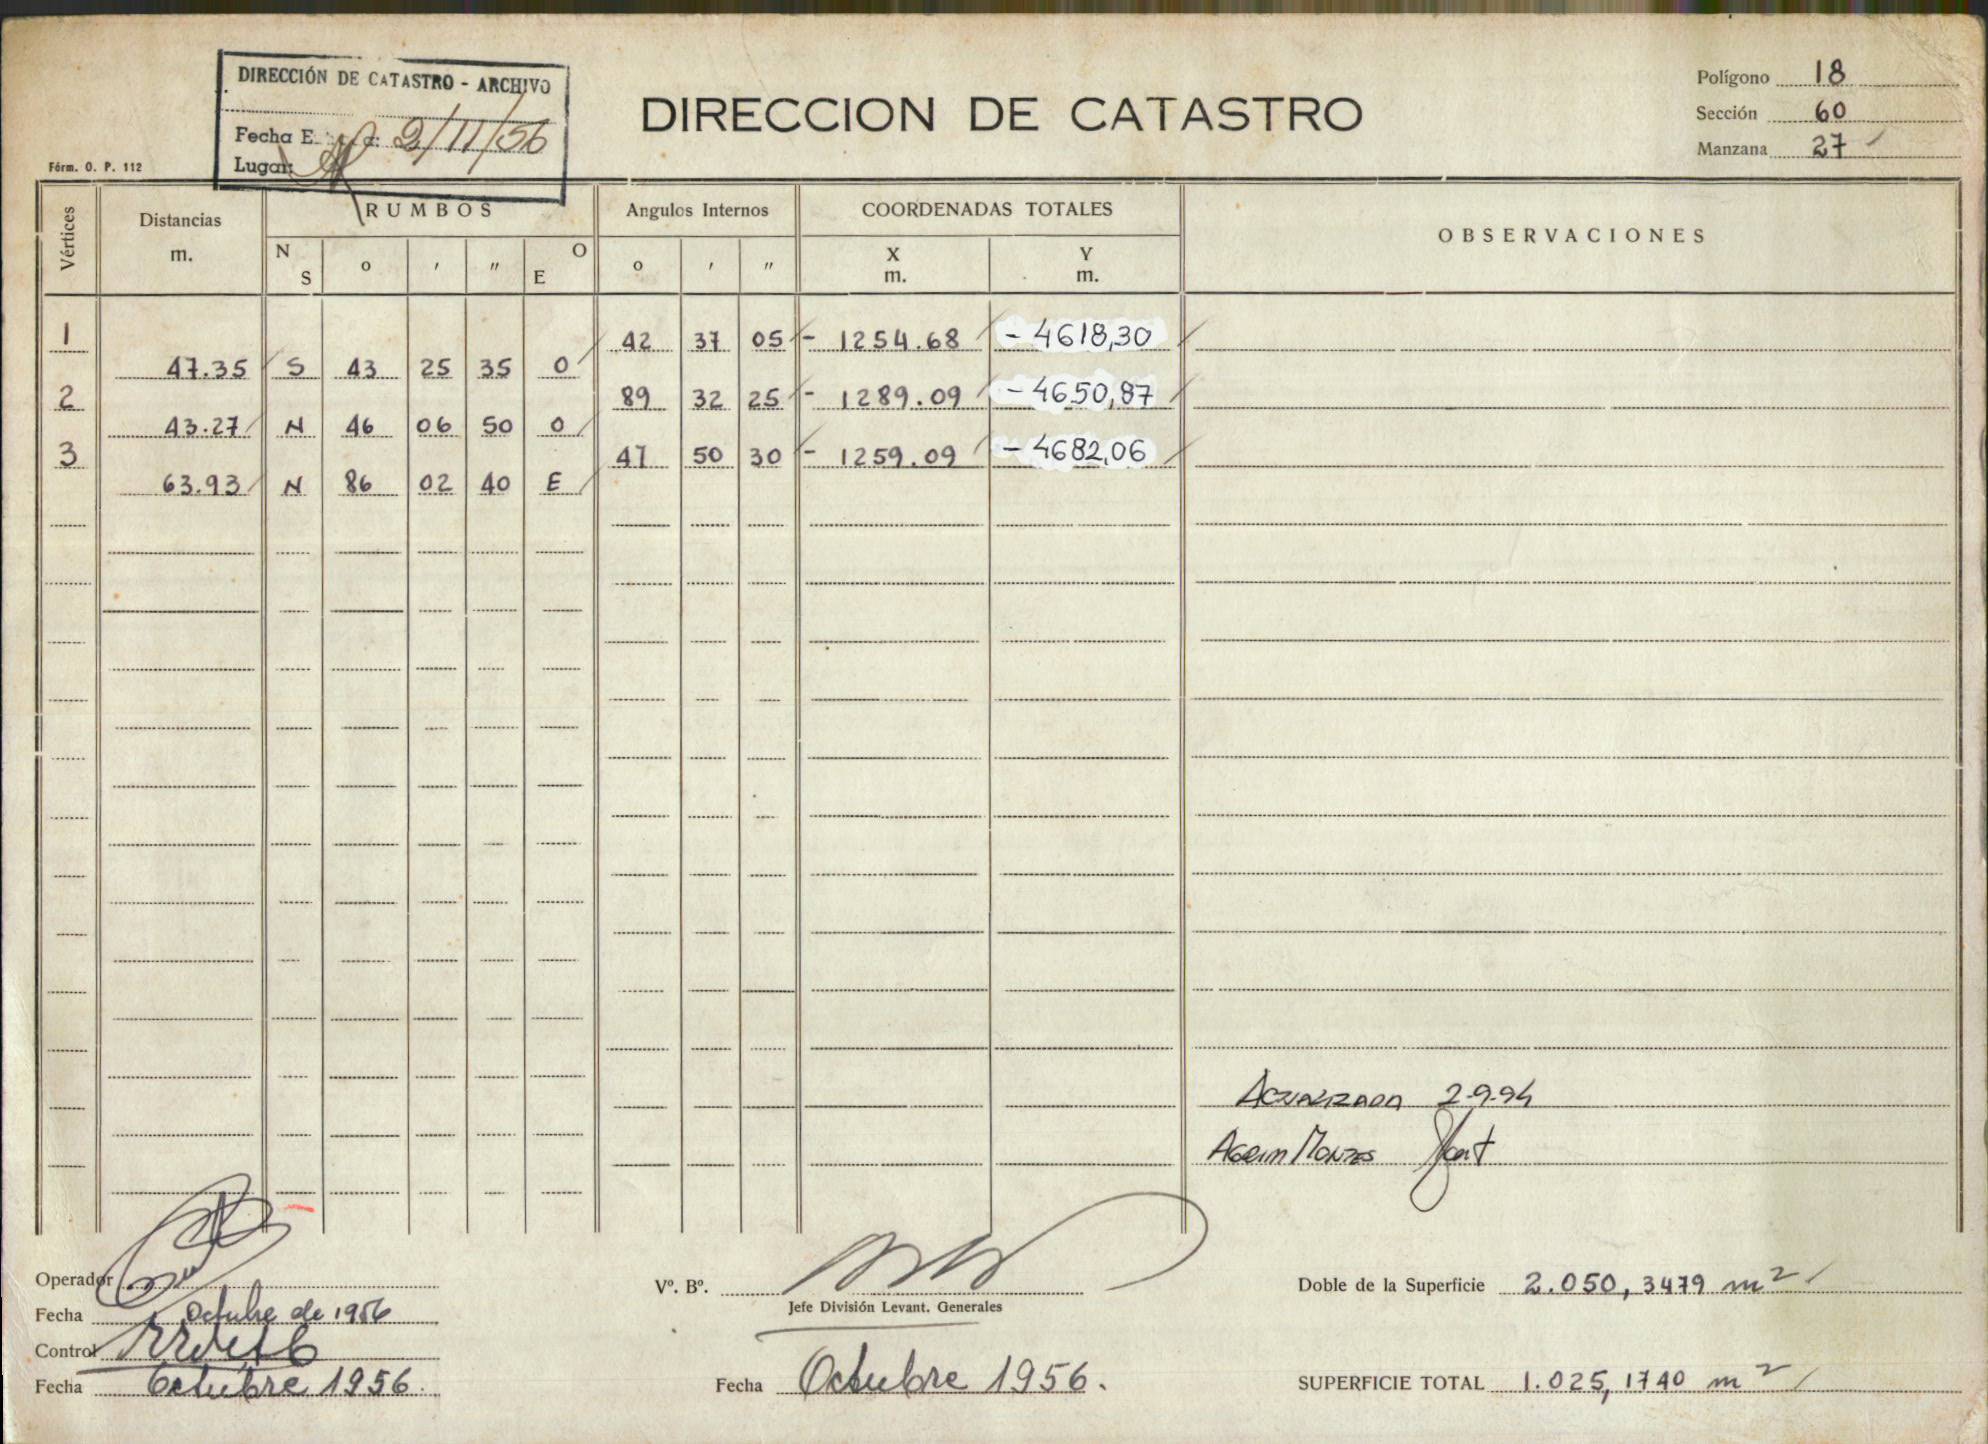 DIRECCIÓN DE CATASTRO - ARCHIVO
Fecha E. 2/11/56
Lugar:
DIRECCION DE CATASTRO
Polígono 18
Sección 60
Manzana 27
Fórm. O. P. 112
Vértices Distancias m. RUMBOS N S o ' " O E Angulos Internos o ' " COORDENADAS TOTALES X m. Y m. OBSERVACIONES
1 42 37 05 - 1254.68 - 4618,30
47.35 S 43 25 35 O
2 89 32 25 - 1289.09 - 4650,87
43.27 N 46 06 50 O
3 47 50 30 - 1259.09 - 4682,06
63.93 N 86 02 40 E
Actualizada 2-9-94
Agrim Montes
Operador
Fecha Octubre de 1956
Control
Fecha Octubre 1956.
Vº. Bº.
Jefe División Levant. Generales
Fecha Octubre 1956.
Doble de la Superficie 2.050,3479 m2
SUPERFICIE TOTAL 1.025,1740 m2